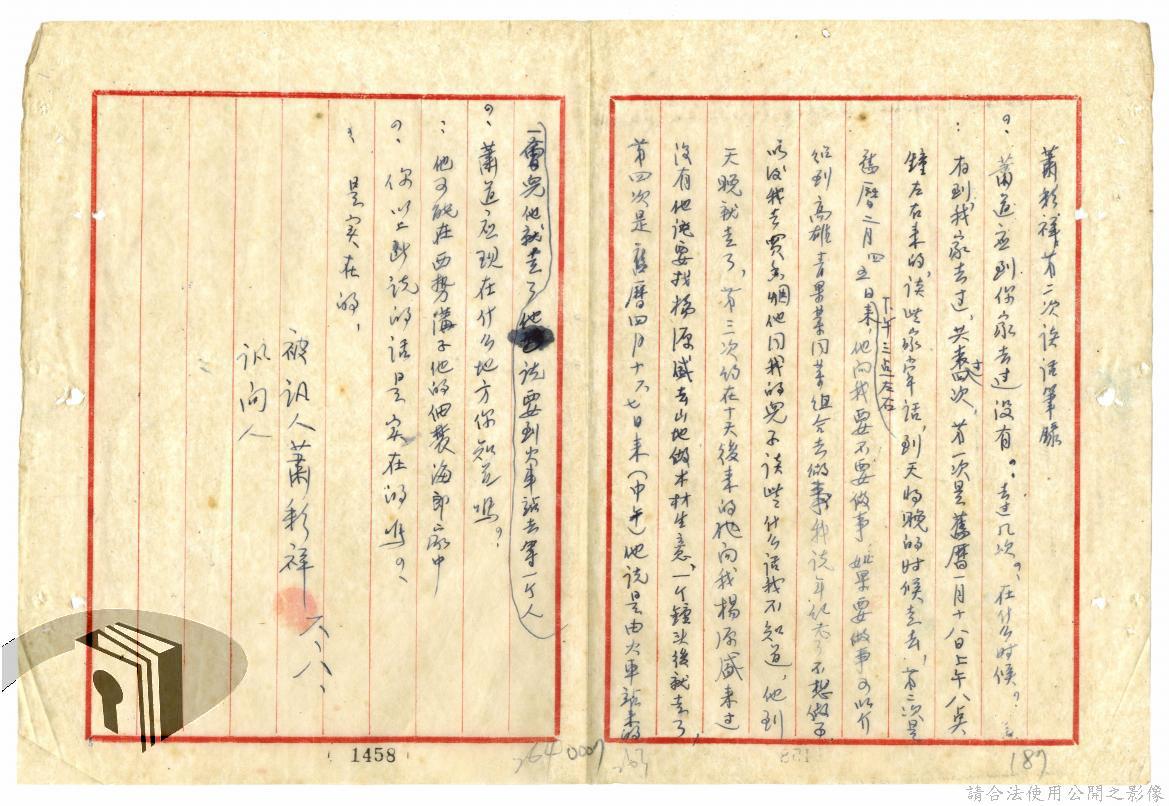 蕭彩祥第二次談話筆錄
？：蕭道应到你家去过没有？去过几次？在什么时候？
：有到我家去过，共来过四次，第一次是舊曆一月十八日上午八点
鐘左右来的，谈些家常话，到天将晚的时候走去，第二次是
舊曆二月四五日下午三点左右来，他向我要不要做事，如果要做事可以介
绍到高雄青果菜同業组合去做事，我说年纪老了不想做了
以後我去買香烟他同我的兒子谈些什么话我不知道，他到
天晚就走了，第三次约在十天後来的他向我楊源盛来过
没有他说要找楊源盛去山地做木材生意，一个鐘头後就走了，
第四次是舊曆四月十六七日来（中午）他说是由火車站来的
一會兒他就走了他说要到火車站去等一个人
？：蕭道应现在什么地方你知道嗎？
：他可能在西势溝子他的
海郎家中
？：你以上所说的话是实在的嗎？
：是实在的，
被讯人蕭彩祥 六、八、
讯问人
1458
264 0007
187
請合法使用公開之影像